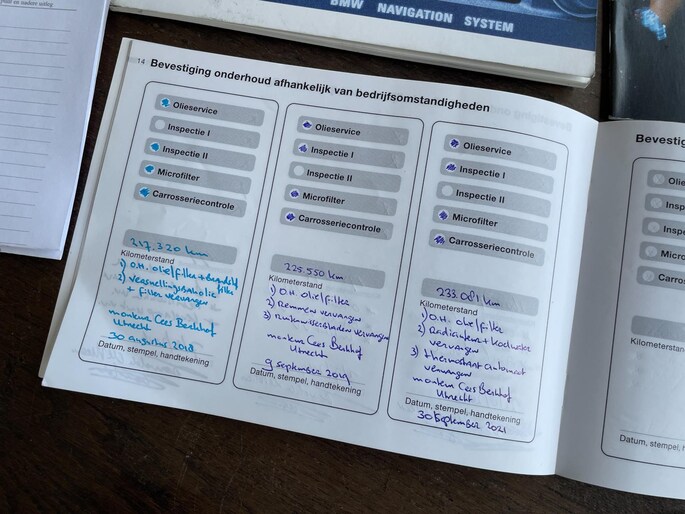 BMW NAVIGATION SYSTEM
14 Bevestiging onderhoud afhankelijk van bedrijfsomstandigheden
Olieservice
Inspectie I
Inspectie II
Microfilter
Carrosseriecontrole
217.320 km
Kilometerstand
1) O.H. olie/filter +
filter
2) versnellingsbakolie
+ filter vervangen
monteur Cees Berkhof
Utrecht
30 augustus 2018
Datum, stempel, handtekening
Olieservice
Inspectie I
Inspectie II
Microfilter
Carrosseriecontrole
225.550 km
Kilometerstand
1) O.H. olie/filter
2) Remmen vervangen
3) Ruitenwisserbladen vervangen
monteur Cees Berkhof
Utrecht
9 september 2019
Datum, stempel, handtekening
Olieservice
Inspectie I
Inspectie II
Microfilter
Carrosseriecontrole
233.081 km
Kilometerstand
1) O.H. olie/filter
2) Radiateur + koelwater
vervangen
3) thermostaat automaat
vervangen
monteur Cees Berkhof
Utrecht
Datum, stempel, handtekening
30 September 2021
Bevestig
Olie
Inspe
Inspe
Micro
Carro
Kilometerstand
Datum, stempel, h